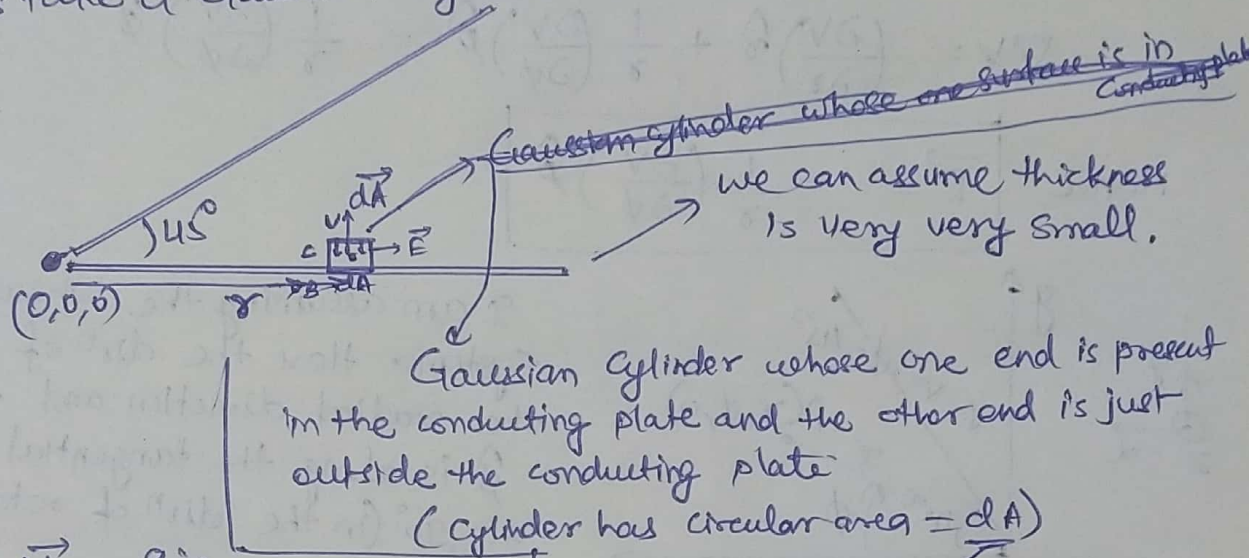 take a
Gaussian cylinder whose one surface is in
Conducting plat
we can assume thickness
is very very small.
dA
E
45°
C
B dA
(0,0,0)
r
Gaussian Cylinder whose one end is present
in the conducting plate and the other end is just
outside the conducting plate
(Cylinder has circular area = dA)